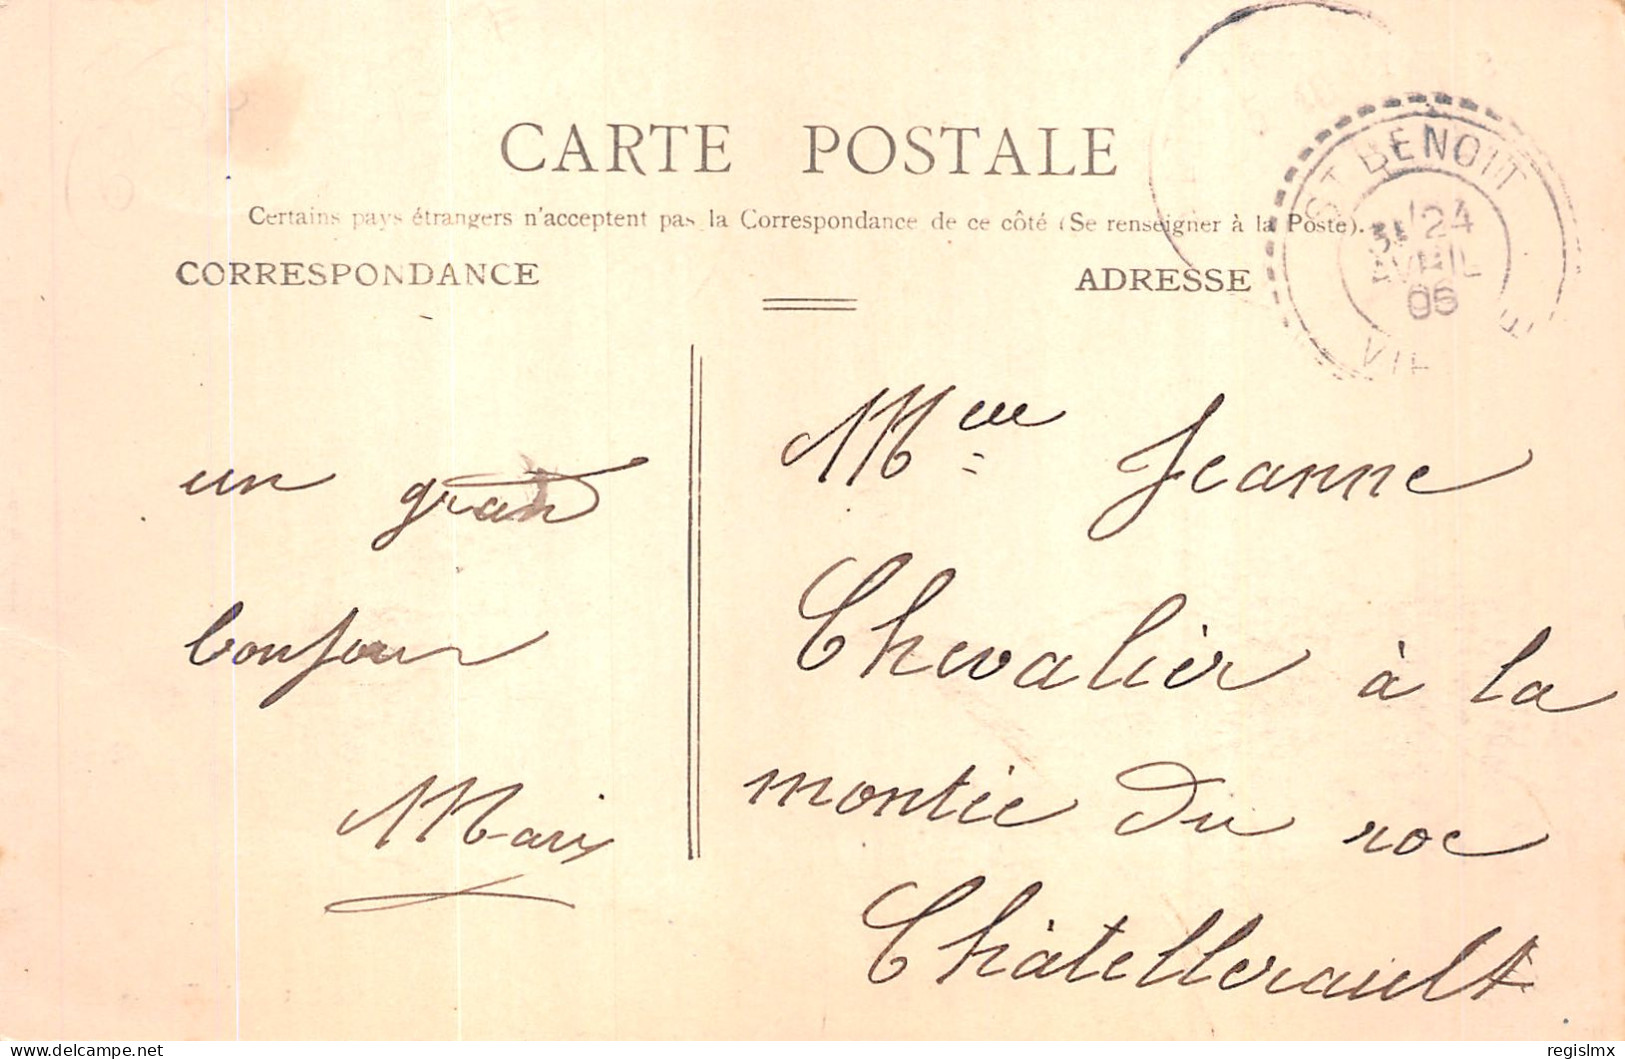 CARTE POSTALE
Certains pays étrangers n'acceptent pas la Correspondance de ce côté (Se renseigner à la Poste).
CORRESPONDANCE
ADRESSE
ST BENOIT
24
AVRIL
05
un gran
bonjour
Marie
Mme Jeanne
Chevalier à la
montie du roc
Châtellerault
www.delcampe.net
regislmx